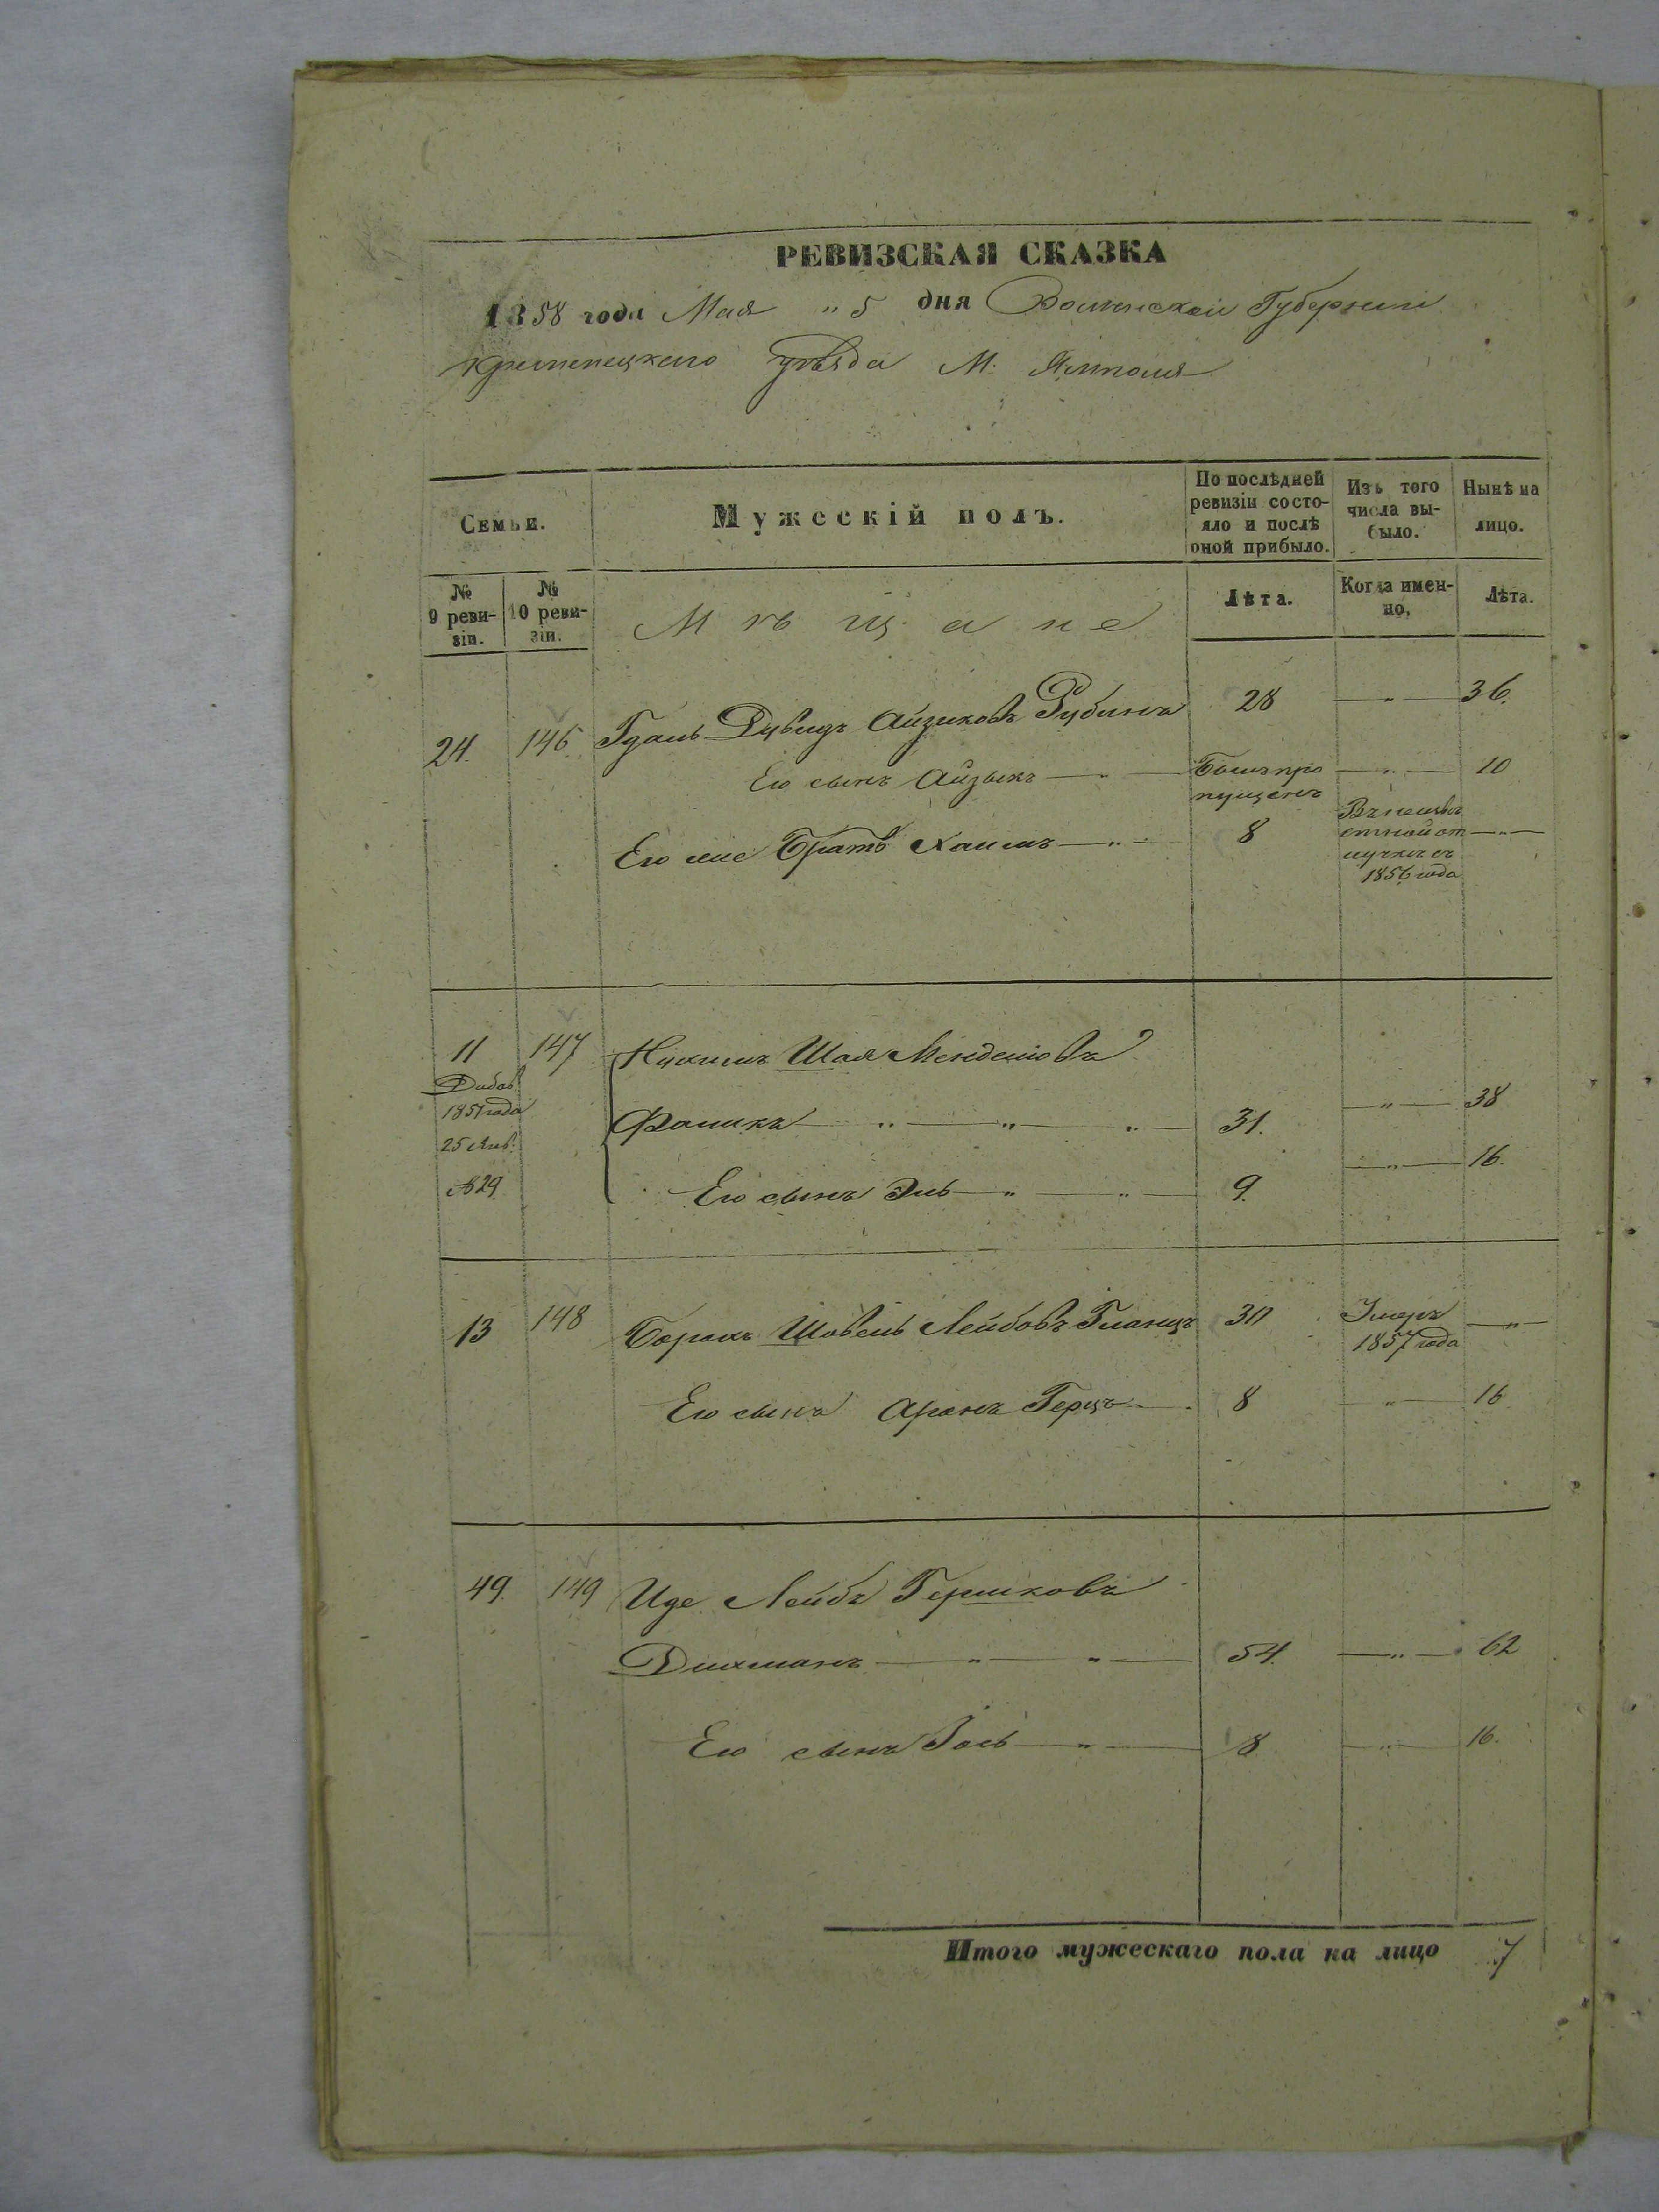 РЕВИЗСКАЯ СКАЗКА
1858 года Мая „ 5 дня Волынской Губернiи
Кременецкаго уѣзда М. Ямполя
Семьи.
Мужескiй полъ.
По послѣдней ревизiи состояло и послѣ оной прибыло.
Изъ того числа выбыло.
Нынѣ на лицо.
№ 9 ревизiи.
№ 10 ревизiи.
Мѣщане
Лѣта.
Когда именно.
Лѣта.
24. 146. Дувидъ Айзиковъ Рубинъ 28 — „ — 36.
Его сынъ Айзыкъ — „ — Былъ пропущенъ — „ — 10
Его же Братъ Хаимъ — „ — 8 Въ неизвѣстной отлучкѣ съ 1856 года — „ —
11 147 Нухимъ Шая Менделіовъ
Добав.
1851 года
25 Янв.
№ 29
Фаликъ — „ — „ — „ — 31. — „ — 38
Его сынъ Эль — „ — „ — 9. — „ — 16.
13 148 Борохъ Шовель Лейбовъ Гланцъ 30 Умеръ 1857 года — „ —
Его сынъ Аронъ Герцъ — 8 — „ — 16
49. 149 Иде Лейбъ Гершковъ
Дихманъ — „ — „ — 54. — „ — 62
Его сынъ Іось — „ — 8 — „ — 16.
Итого мужескаго пола на лицо 7